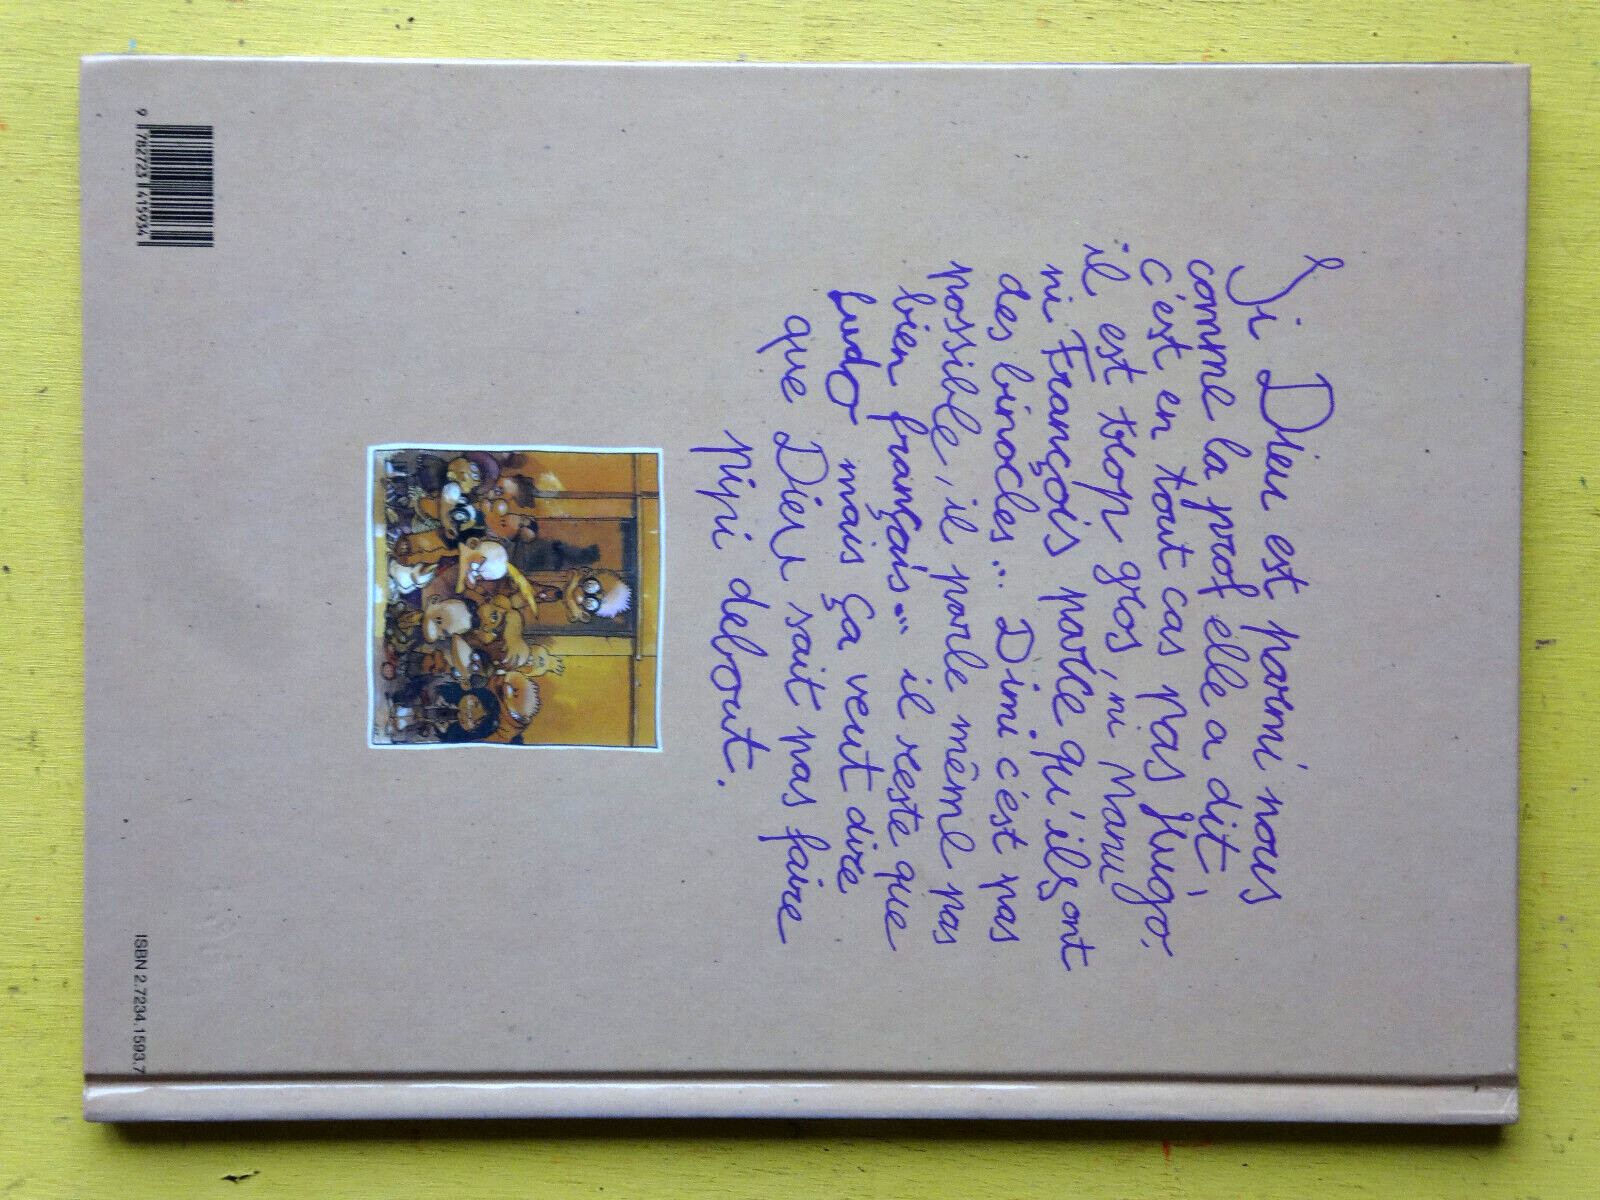 Si Dieu est parmi nous
comme la prof elle a dit,
c'est en tout cas pas Hugo.
il est trop gros, ni Manu
ni François parce qu'ils ont
des binocles... Dimi c'est pas
possible, il parle même pas
bien français... il reste que
Ludo mais ça veut dire
que Dieu sait pas faire
pipi debout.
9 782723 415934
ISBN 2.7234.1593.7